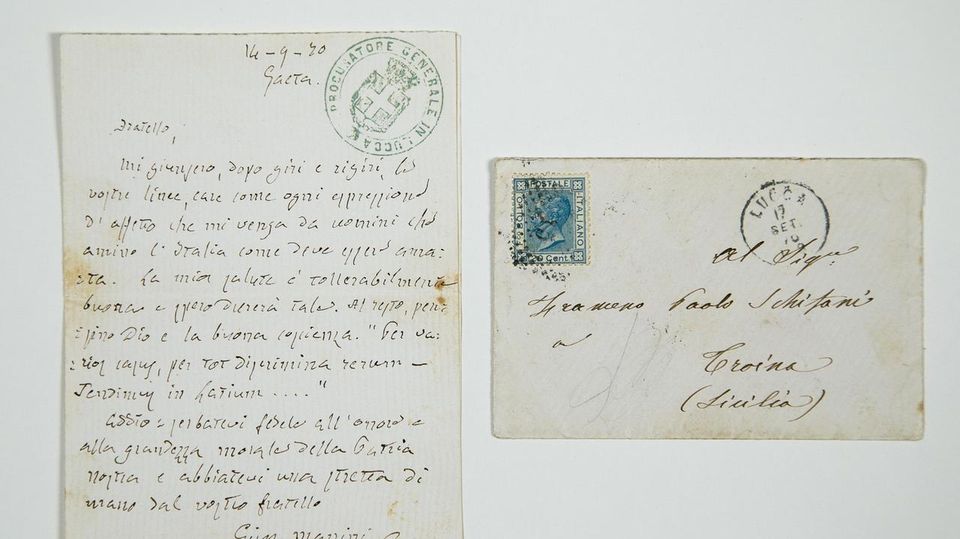 14 - 9 - 70
Gaeta.
PROCURATORE GENERALE IN LUCCA
Fratello,
Mi giunsero, dopo giri e rigiri, le
vostre linee, care come ogni espressione
d'affetto che mi venga da uomini che
amino l'Italia come deve essere ama-
ta. La mia salute è tollerabilmente
buona e spero durerà tale. Al resto, pen-
sino Dio e la buona coscienza. "Per va-
rios casus, per tot discrimina rerum —
Tendimus in Latium ...."
Addio: serbatevi fedele all'onore e
alla grandezza morale della Patria
nostra e abbiatevi una stretta di
mano dal vostro fratello
BOLLO POSTALE ITALIANO
20 Cent
LUCCA
17
SET.
70
Al Sigr
Paolo Schifani
a
Troina
(Sicilia)